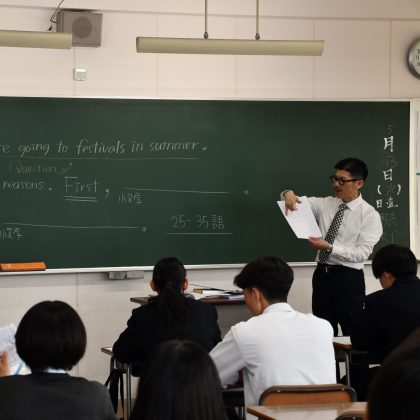 re going to festivals in summer.
Question
reasons. First, 小文字 .
小文字 25-35語
5月13日(火)